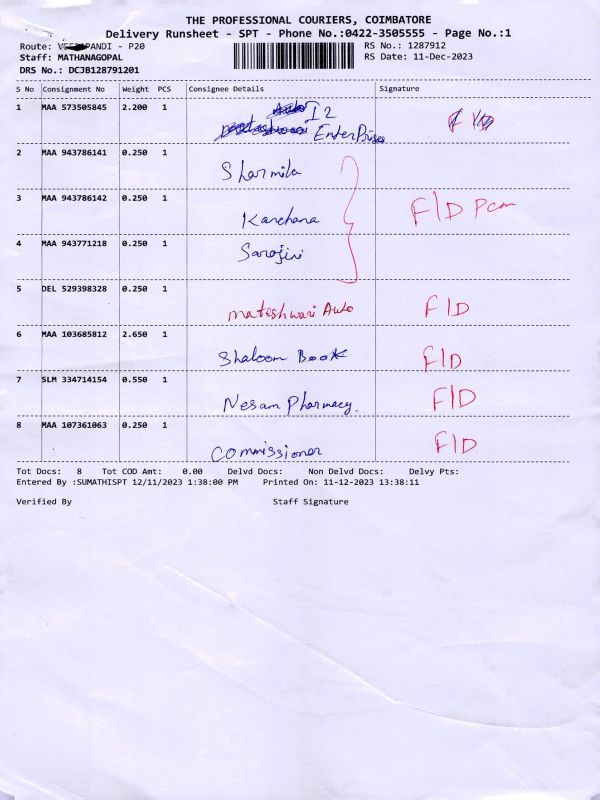 THE PROFESSIONAL COURIERS, COIMBATORE
Delivery Runsheet - SPT - Phone No.:0422-3505555 - Page No.:1
Route: PANDI - P20 RS No.: 1287912
Staff: MATHANAGOPAL RS Date: 11-Dec-2023
DRS No.: DCJB128791201
S No Consignment No Weight PCS Consignee Details Signature
1 MAA 573505845 2.200 1 I2
EnterPrises
2 MAA 943786141 0.250 1 Sharmila
3 MAA 943786142 0.250 1 Kanchana F/D Pcm
4 MAA 943771218 0.250 1 Sarojini
5 DEL 529398328 0.250 1 mateshwari Auto F/D
6 MAA 103685812 2.650 1 Shaloom Book F/D
7 SLM 334714154 0.550 1 Nesam Pharmacy. F/D
8 MAA 107361063 0.250 1 Commissioner F/D
Tot Docs: 8 Tot COD Amt: 0.00 Delvd Docs: Non Delvd Docs: Delvy Pts:
Entered By :SUMATHISPT 12/11/2023 1:38:00 PM Printed On: 11-12-2023 13:38:11
Verified By Staff Signature